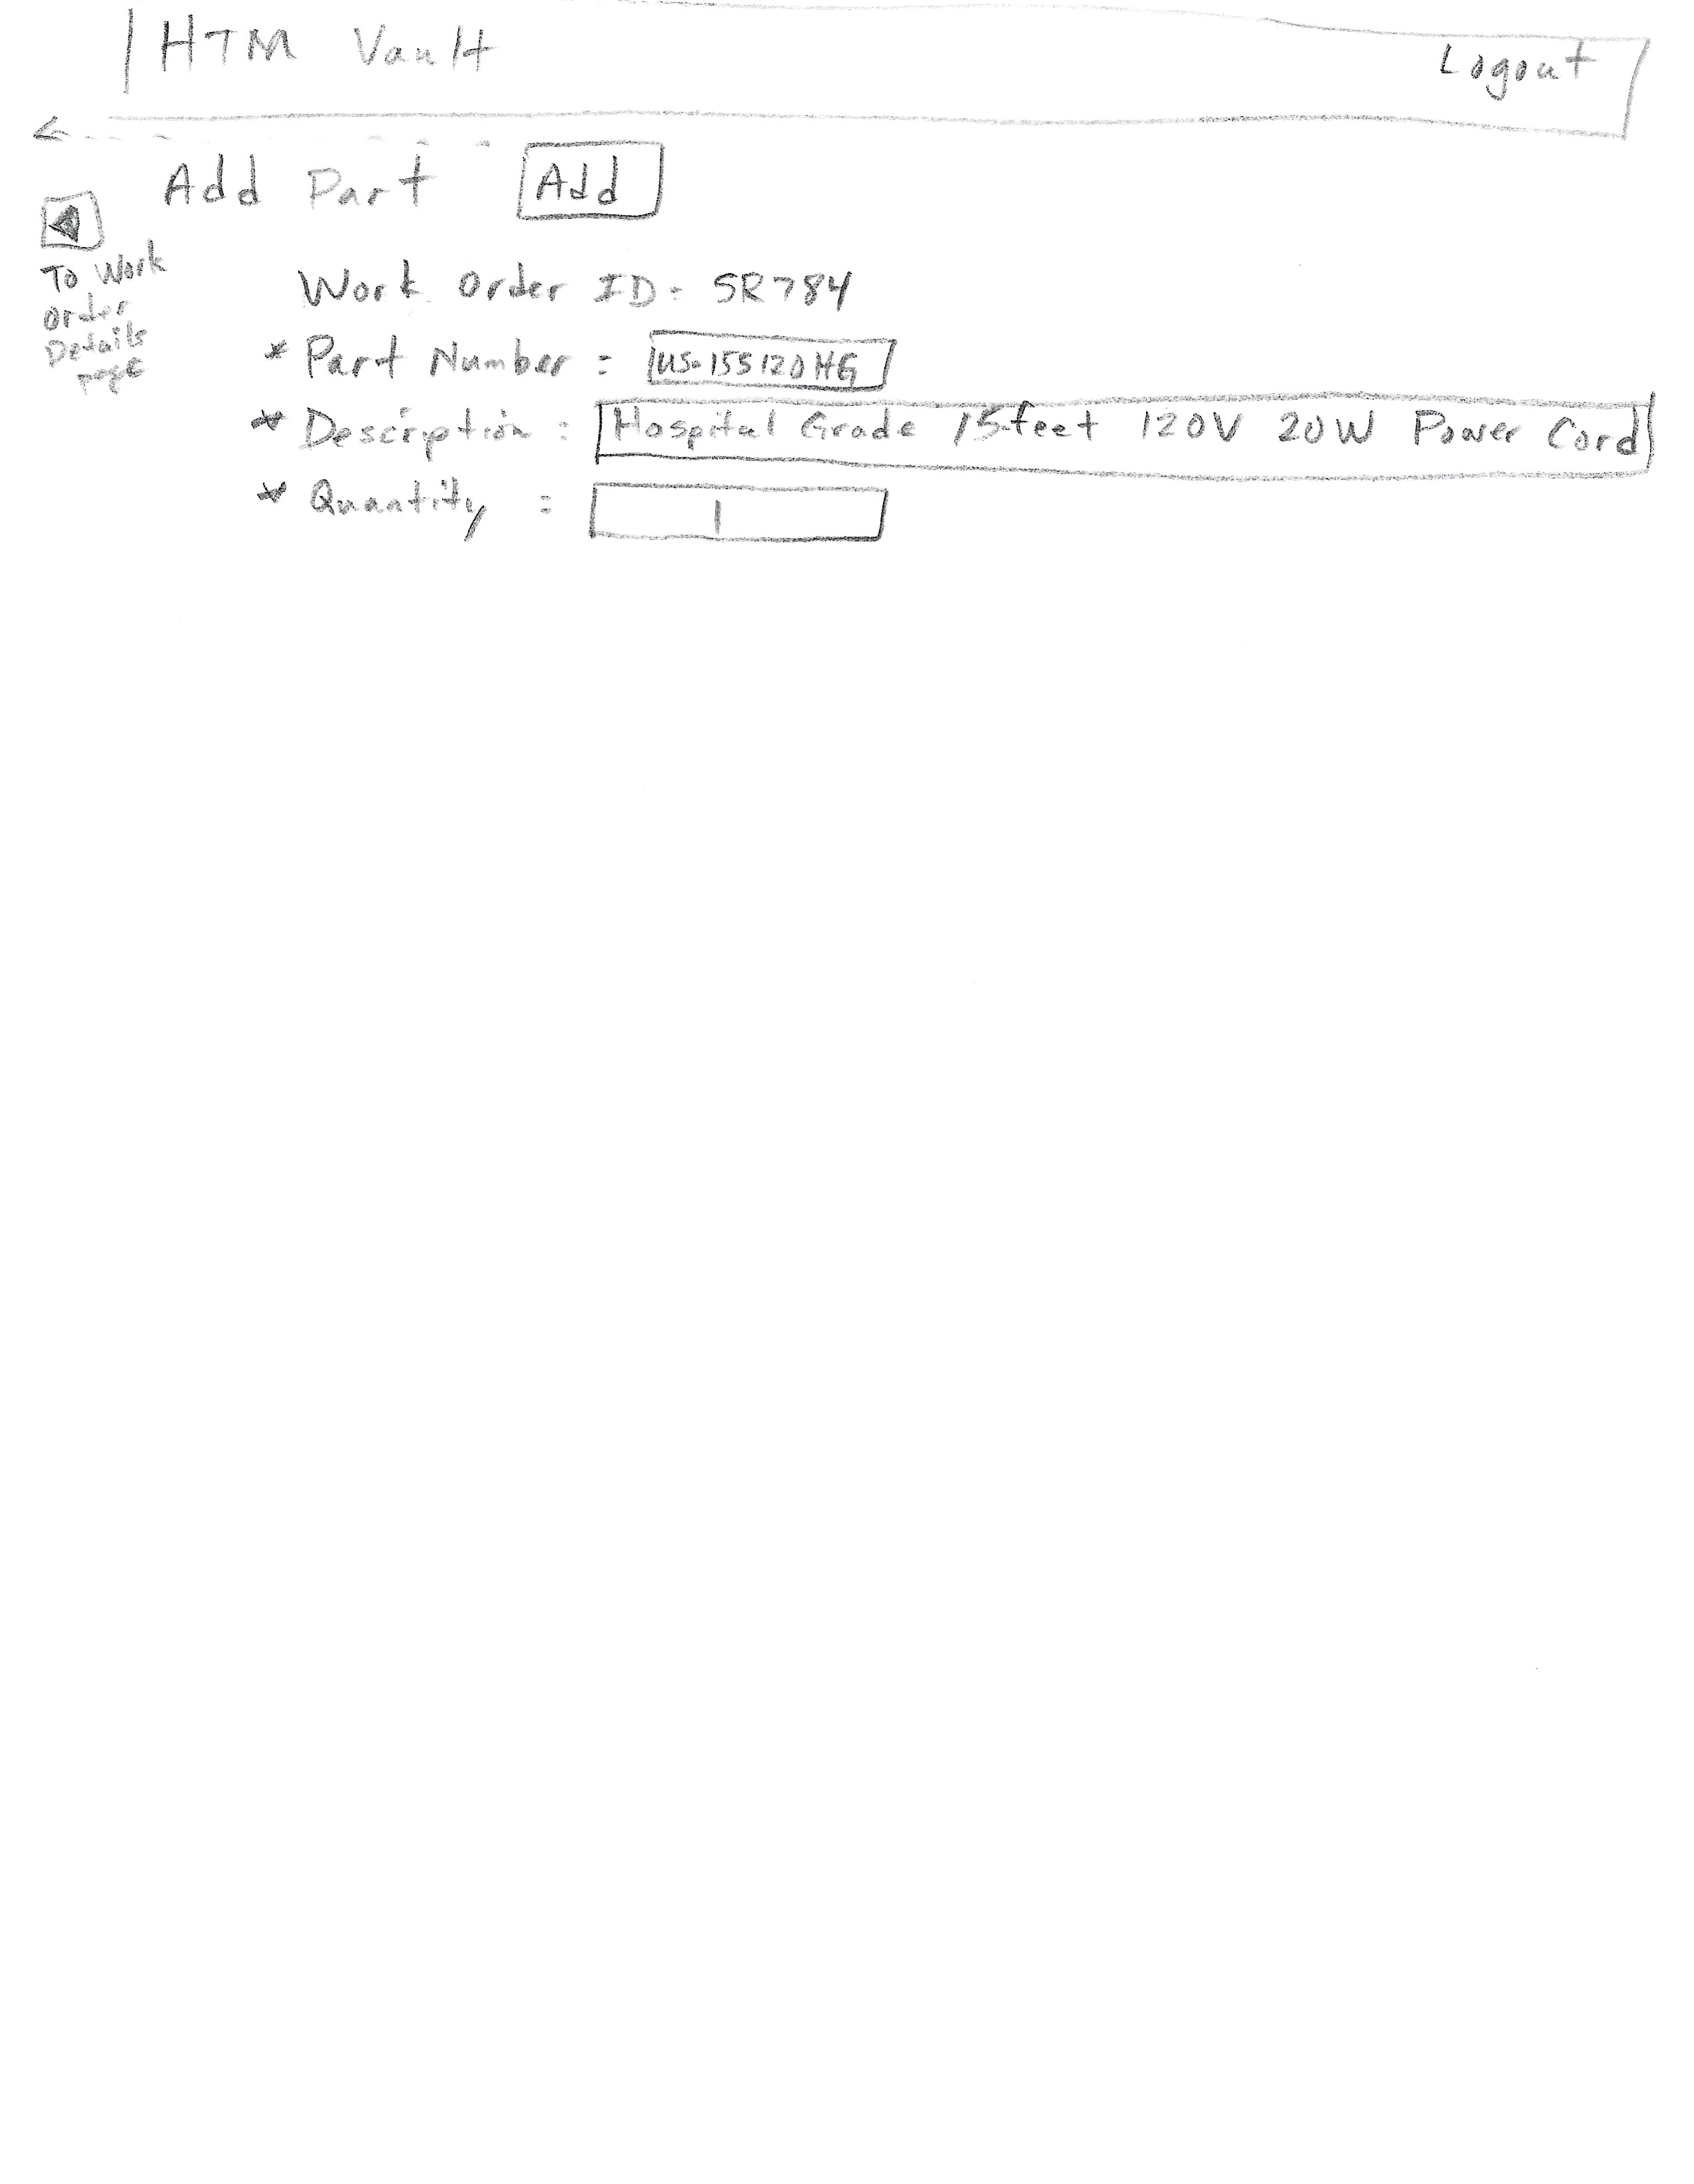 HTM Vault Logout
Add Part Add
To Work
Order
Details
page
Work Order ID: SR784
* Part Number : US-155120HG
* Description : Hospital Grade 15feet 120V 20W Power Cord
* Quantity : 1